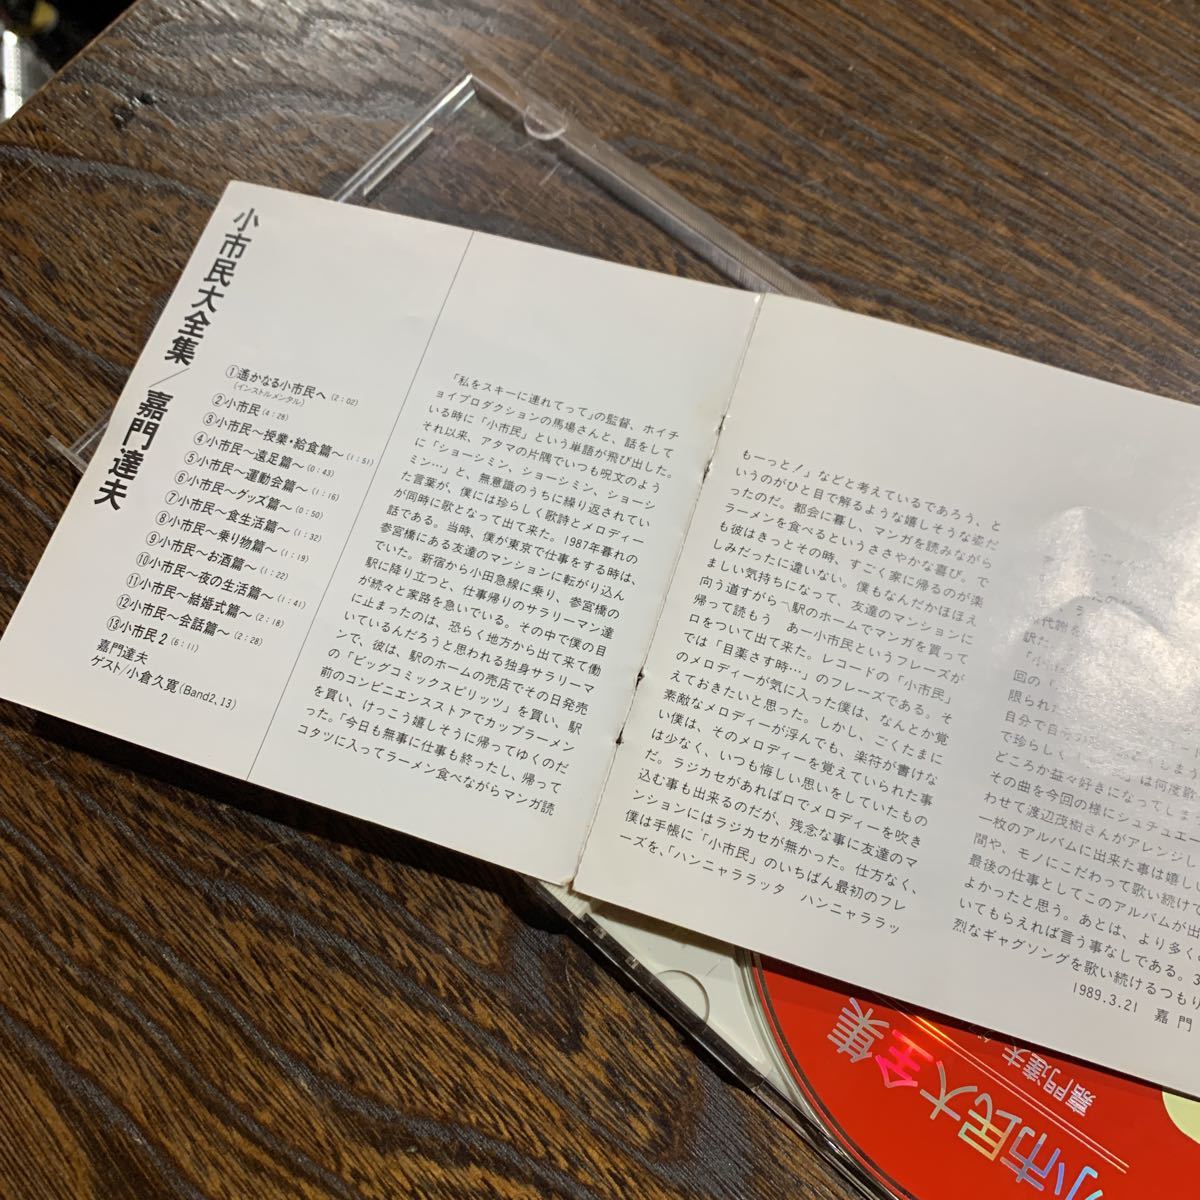 小市民大全集／嘉門達夫
①遙かなる小市民へ(2:02)
(インストルメンタル)
②小市民(4:28)
③小市民〜授業・給食篇〜(1:51)
④小市民〜遠足篇〜(0:43)
⑤小市民〜運動会篇〜(1:16)
⑥小市民〜グッズ篇〜(0:50)
⑦小市民〜食生活篇〜(1:32)
⑧小市民〜乗り物篇〜(1:19)
⑨小市民〜お酒篇〜(1:22)
⑩小市民〜夜の生活篇〜(1:41)
⑪小市民〜結婚式篇〜(2:18)
⑫小市民〜会話篇〜(2:28)
⑬小市民2(6:11)
嘉門達夫
ゲスト/小倉久寛(Band2,13)
「私をスキーに連れてって」の監督、ホイチ
ョイプロダクションの馬場さんと、話をして
いる時に「小市民」という単語が飛び出した。
それ以来、アタマの片隅でいつも呪文のよう
に「ショーシミン、ショーシミン、ショーシ
ミン…」と、無意識のうちに繰り返されてい
た言葉が、僕には珍らしく歌詩とメロディー
が同時に歌となって出て来た。1987年暮れの
話である。当時、僕が東京で仕事をする時は、
参宮橋にある友達のマンションに転がり込ん
でいた。新宿から小田急線に乗り、参宮橋の
駅に降り立つと、仕事帰りのサラリーマン達
が続々と家路を急いでいる。その中で僕の目
に止まったのは、恐らく地方から出て来て働
いているんだろうと思われる独身サラリーマ
ンで、彼は、駅のホームの売店でその日発売
の「ビッグコミックスピリッツ」を買い、駅
前のコンビニエンスストアでカップラーメン
を買い、けっこう嬉しそうに帰ってゆくのだ
った。「今日も無事に仕事も終ったし、帰って
コタツに入ってラーメン食べながらマンガ読
もーっと！」などと考えているであろう、と
いうのがひと目で解るような嬉しそうな姿だ
ったのだ。都会に暮し、マンガを読みながら
ラーメンを食べるというささやかな喜び。で
も彼はきっとその時、すごく家に帰るのが楽
しみだったに違いない。僕もなんだかほほえ
ましい気持ちになって、友達のマンションに
向う道すがら〽駅のホームでマンガを買って
帰って読もう あー小市民というフレーズが
口をついて出て来た。レコードの「小市民」
では「目薬さす時…」のフレーズである。そ
のメロディーが気に入った僕は、なんとか覚
えておきたいと思った。しかし、ごくたまに
素敵なメロディーが浮んでも、楽符が書けな
い僕は、そのメロディーを覚えていられた事
は少なく、いつも悔しい思いをしていたもの
だ。ラジカセがあれば口でメロディーを吹き
込む事も出来るのだが、残念な事に友達のマ
ンションにはラジカセが無かった。仕方なく、
僕は手帳に「小市民」のいちばん最初のフレ
ーズを、「ハンニャララッタ ハンニャララッ
代謝を
訳た。
「小市
回の「
限られた
自分で自
で珍らしく
」は何度歌
どころか益々好きになってしま
その曲を今回の様にシュチュエー
わせて渡辺茂樹さんがアレンジし
一枚のアルバムに出来た事は嬉し
間や、モノにこだわって歌い続けて
最後の仕事としてこのアルバムが出
よかったと思う。あとは、より多くの
いてもらえれば言う事なしである。
烈なギャグソングを歌い続けるつもり
1989.3.21 嘉門
小市民大全集
嘉門達夫